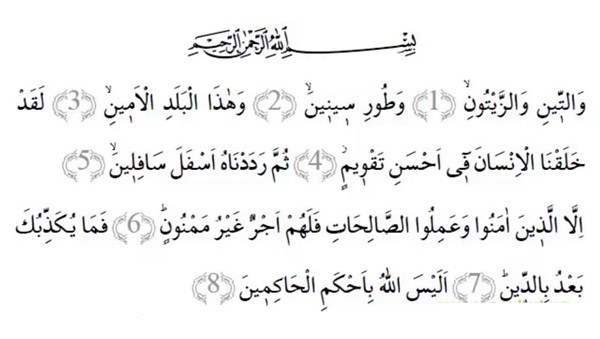 بِسْمِ اللّٰهِ الرَّحْمٰنِ الرَّحِيمِ
وَالتّ۪ينِ وَالزَّيْتُونِۙ ﴿1﴾ وَطُورِ س۪ين۪ينَۙ ﴿2﴾ وَهٰذَا الْبَلَدِ الْاَم۪ينِۙ ﴿3﴾ لَقَدْ
خَلَقْنَا الْاِنْسَانَ ف۪ٓي اَحْسَنِ تَقْو۪يمٍۘ ﴿4﴾ ثُمَّ رَدَدْنَاهُ اَسْفَلَ سَافِل۪ينَۙ ﴿5﴾
اِلَّا الَّذ۪ينَ اٰمَنُوا وَعَمِلُوا الصَّالِحَاتِ فَلَهُمْ اَجْرٌ غَيْرُ مَمْنُونٍۜ ﴿6﴾ فَمَا يُكَذِّبُكَ
بَعْدُ بِالدّ۪ينِۜ ﴿7﴾ اَلَيْسَ اللّٰهُ بِاَحْكَمِ الْحَاكِم۪ينَ ﴿8﴾